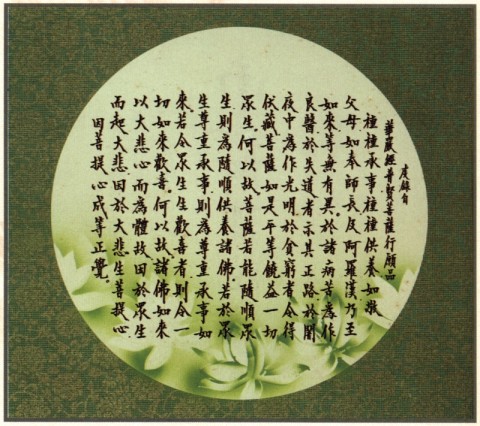 虔錄自
華嚴經普賢菩薩行願品
種種承事種種供養如敬
父母如奉師長及阿羅漢乃至
如來等無有異。於諸病苦為作
良醫於失道者示其正路於闇
夜中為作光明於貧窮者令得
伏藏菩薩如是平等饒益一切
眾生。何以故菩薩若能隨順眾
生則為隨順供養諸佛。若於眾
生尊重承事則為尊重承事如
來若令眾生生歡喜者則令一
切如來歡喜。何以故諸佛如來
以大悲心而為體故因於眾生
而起大悲因於大悲生菩提心
因菩提心成等正覺。